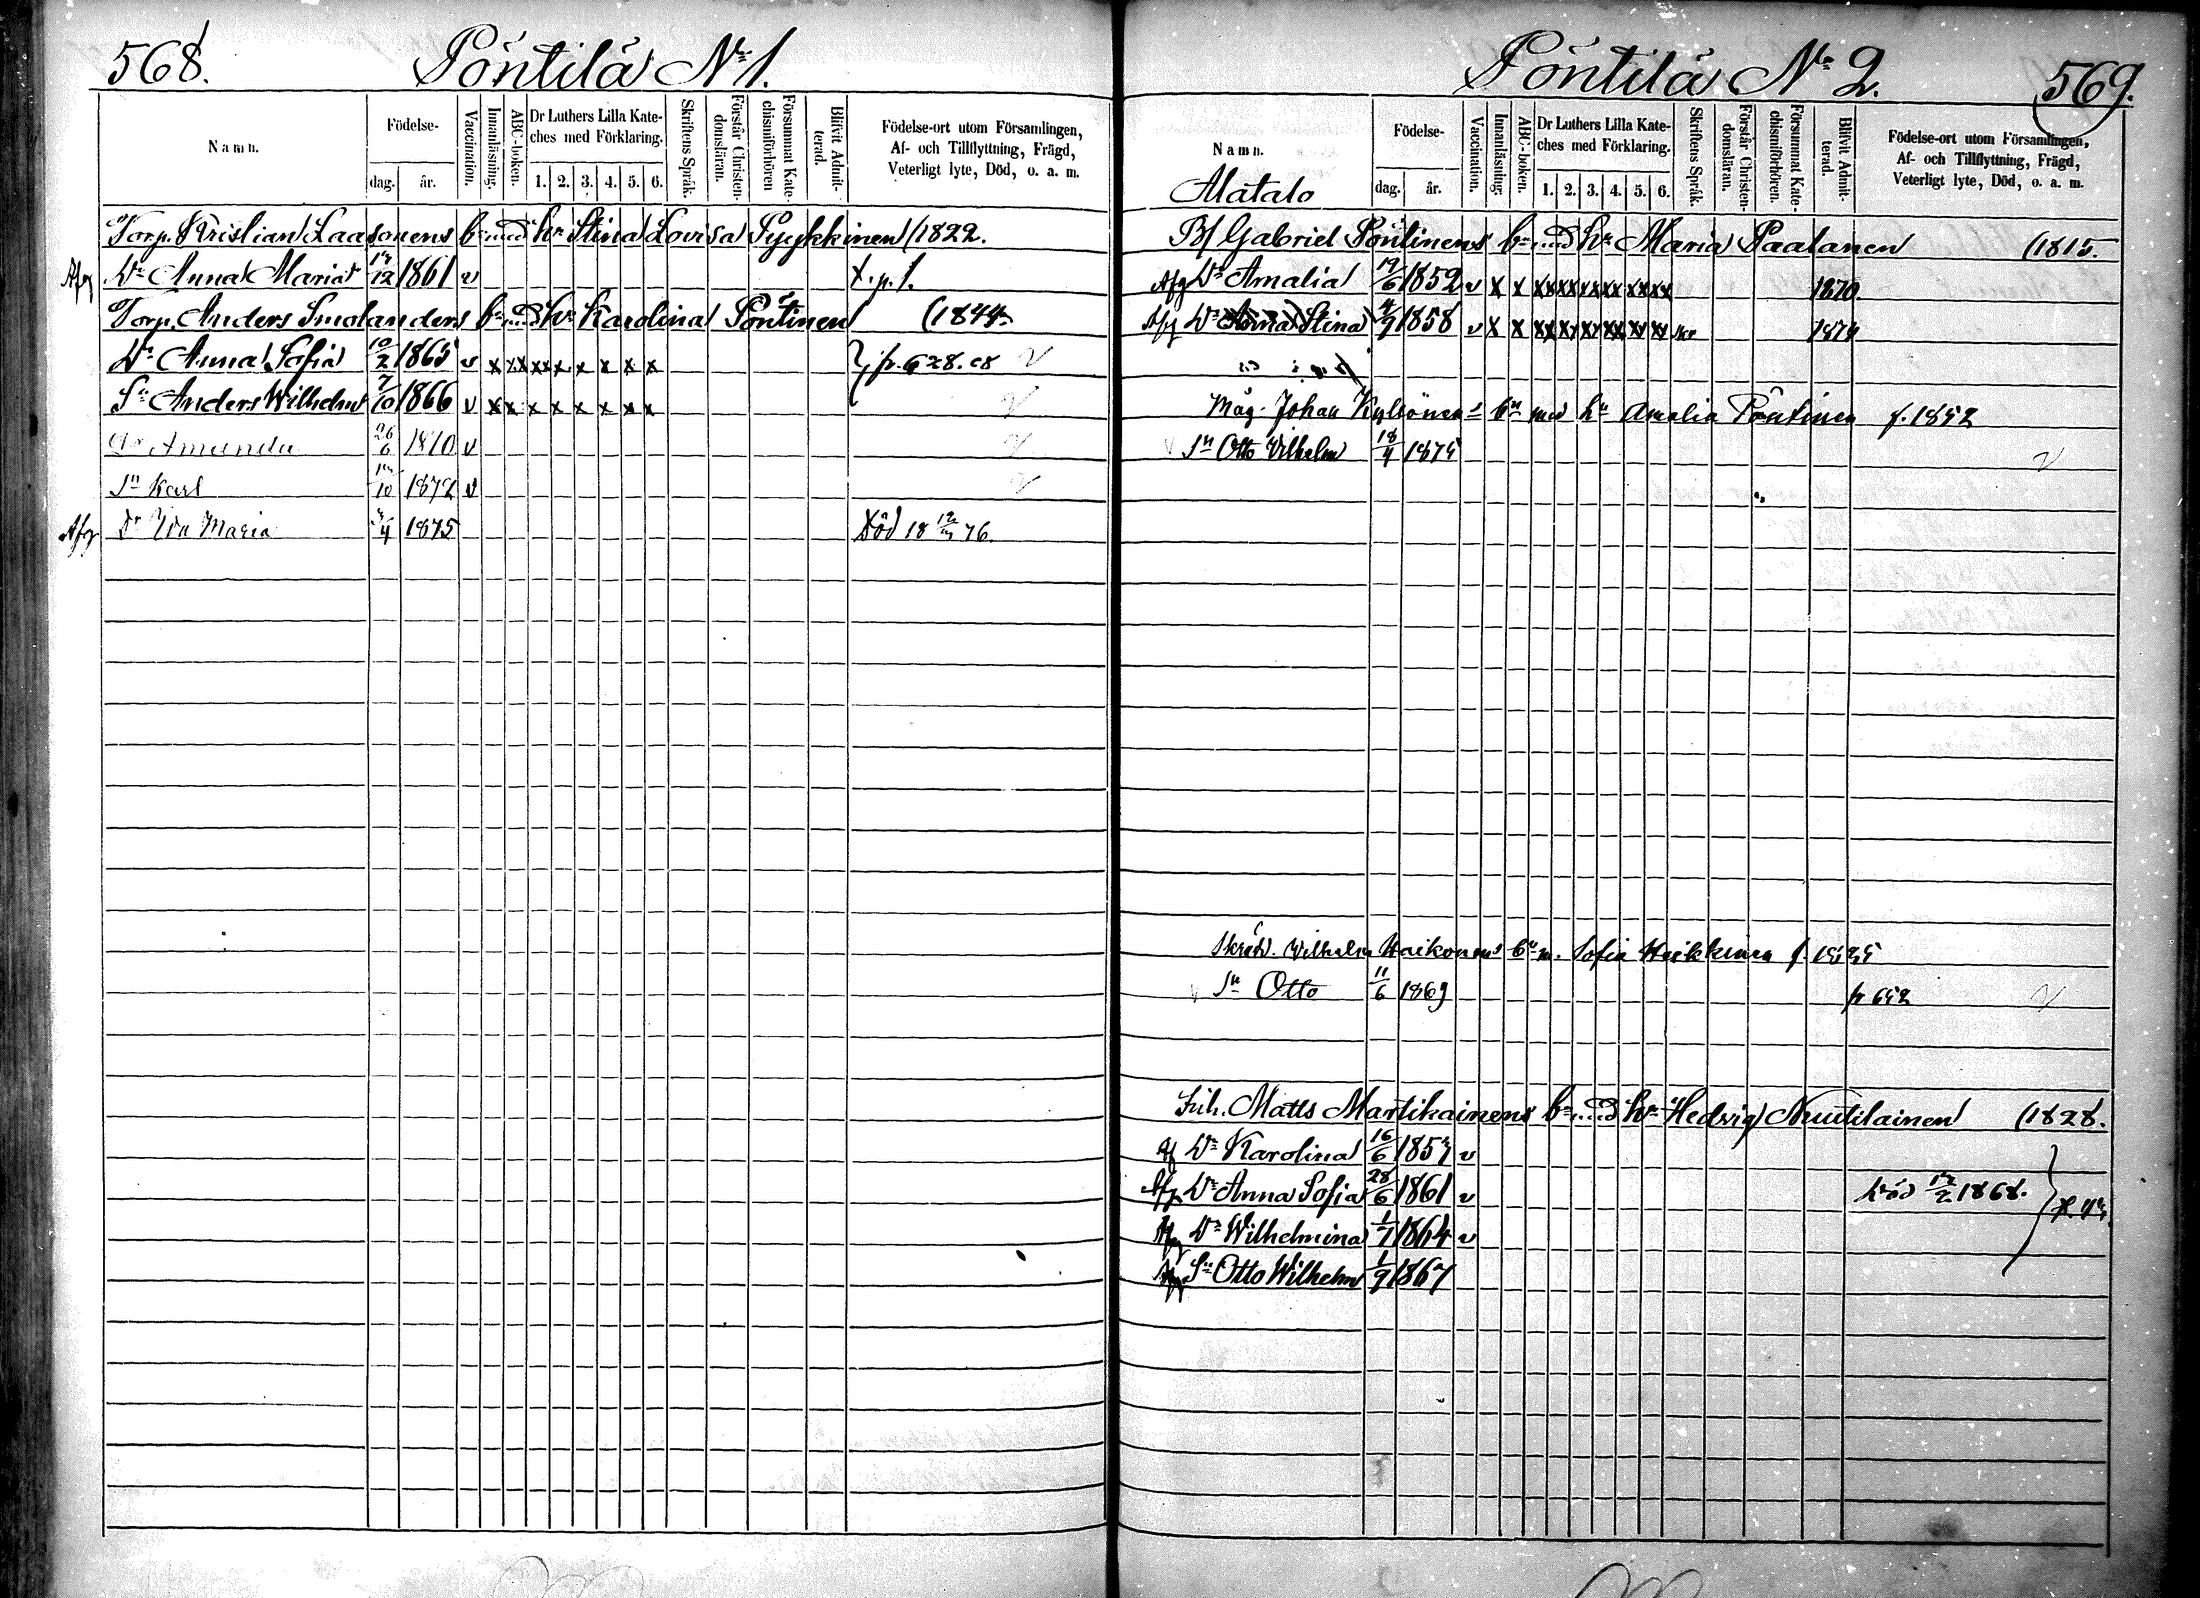 568.
Pöntilä No 1.
Namn.
Födelse-
dag. år.
Vaccination.
Innanläsning.
ABC-boken.
Dr Luthers Lilla Kate-
ches med Förklaring.
1. 2. 3. 4. 5. 6.
Skriftens Språk.
Förstår Christen-
domsläran.
Försummat Kate-
chismiförhören
Blifvit Admit-
terad.
Födelse-ort utom Församlingen,
Af- och Tillflyttning, Frägd,
Veterligt lyte, Död, o. a. m.
Torp. Kristian Laasonens bn med hu Stina Lovisa Pyykkinen (1822.
Afg Dr Anna Maria 12 1861 v
Torp. Anders Smolanders bn med hu Karolina Pöntinen (1844.
Dr Anna Sofia 10/2 1865 v x x x x x x x x x p. 628. 68 v
Sn Anders Wilhelm 7/10 1866 v x x x x x x x x v
Dr Amanda 26/6 1870 v v
Sn Karl 10 1872 v v
Afg Dr Ida Maria 4 1875 Död 18 76.
Pöntilä No 2.
569.
Namn.
Matalo
Födelse-
dag. år.
Vaccination.
Innanläsning.
ABC-boken.
Dr Luthers Lilla Kate-
ches med Förklaring.
1. 2. 3. 4. 5. 6.
Skriftens Språk.
Förstår Christen-
domsläran.
Försummat Kate-
chismiförhören.
Blifvit Admit-
terad.
Födelse-ort utom Församlingen,
Af- och Tillflyttning, Frägd,
Veterligt lyte, Död, o. a. m.
B/ Gabriel Pöntinens bn med hu Maria Paatanen (1815.
Afg Dr Amalia 19/6 1852 v x x xx xx xx xx xx xx 1870.
Afg Dr Anna Stina 4/9 1858 v x x xx xx xx xx xx xx 1874
Måg. Johan Kylbönens bn med hu Amalia Pöntinen f. 1852
v Sn Otto Vilhelm 18/4 1875 v
Wilhelm Haikonens bn m. Sofia Heikkinen f.
v Sn Otto 11/6 1869 p 652 v
Inh. Matts Martikainens bn med hu Hedvig Nuutilainen (1828.
Af Dr Karolina 16/6 1857 v
Afg Dr Anna Sofia 28/6 1861 v död 1868.
Afg Dr Wilhelmina 1/7 1864 v
Afg Sn Otto Wilhelm 1/9 1867